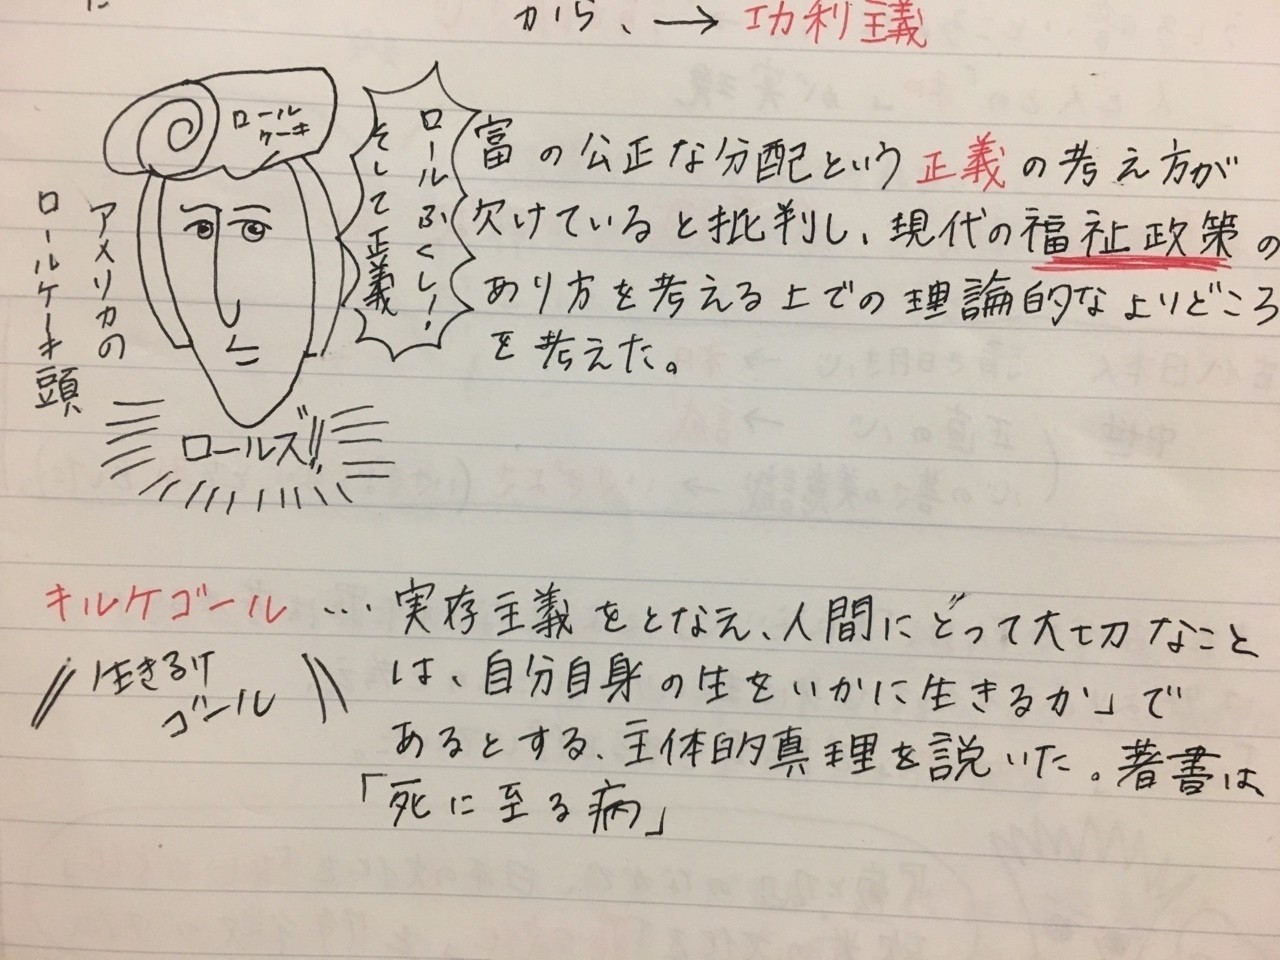 から、→ 功利主義
ロール
ケーキ
ロールふくし!
そして正義
アメリカの
ロールケーキ頭
ロールズ!!
富の公正な分配という正義の考え方が
欠けていると批判し、現代の福祉政策の
あり方を考える上での理論的なよりどころ
を考えた。
キルケゴール…実存主義をとなえ、人間にとって大切なこと
は、自分自身の生をいかに生きるか」で
あるとする、主体的真理を説いた。著書は
「死に至る病」
生きるけ
ゴール